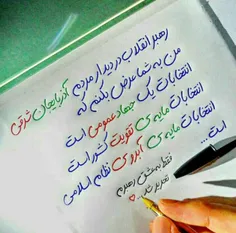 رهبر انقلاب در دیدار مردم آذربایجان شرقی
من به شما عرض بکنم که
انتخابات یک جهاد عمومی است
انتخابات مایه ی تقویت کشور است
انتخابات مایه ی آبروی نظام اسلامی
است...
فقط به عشق رهبرم
تحریر شد